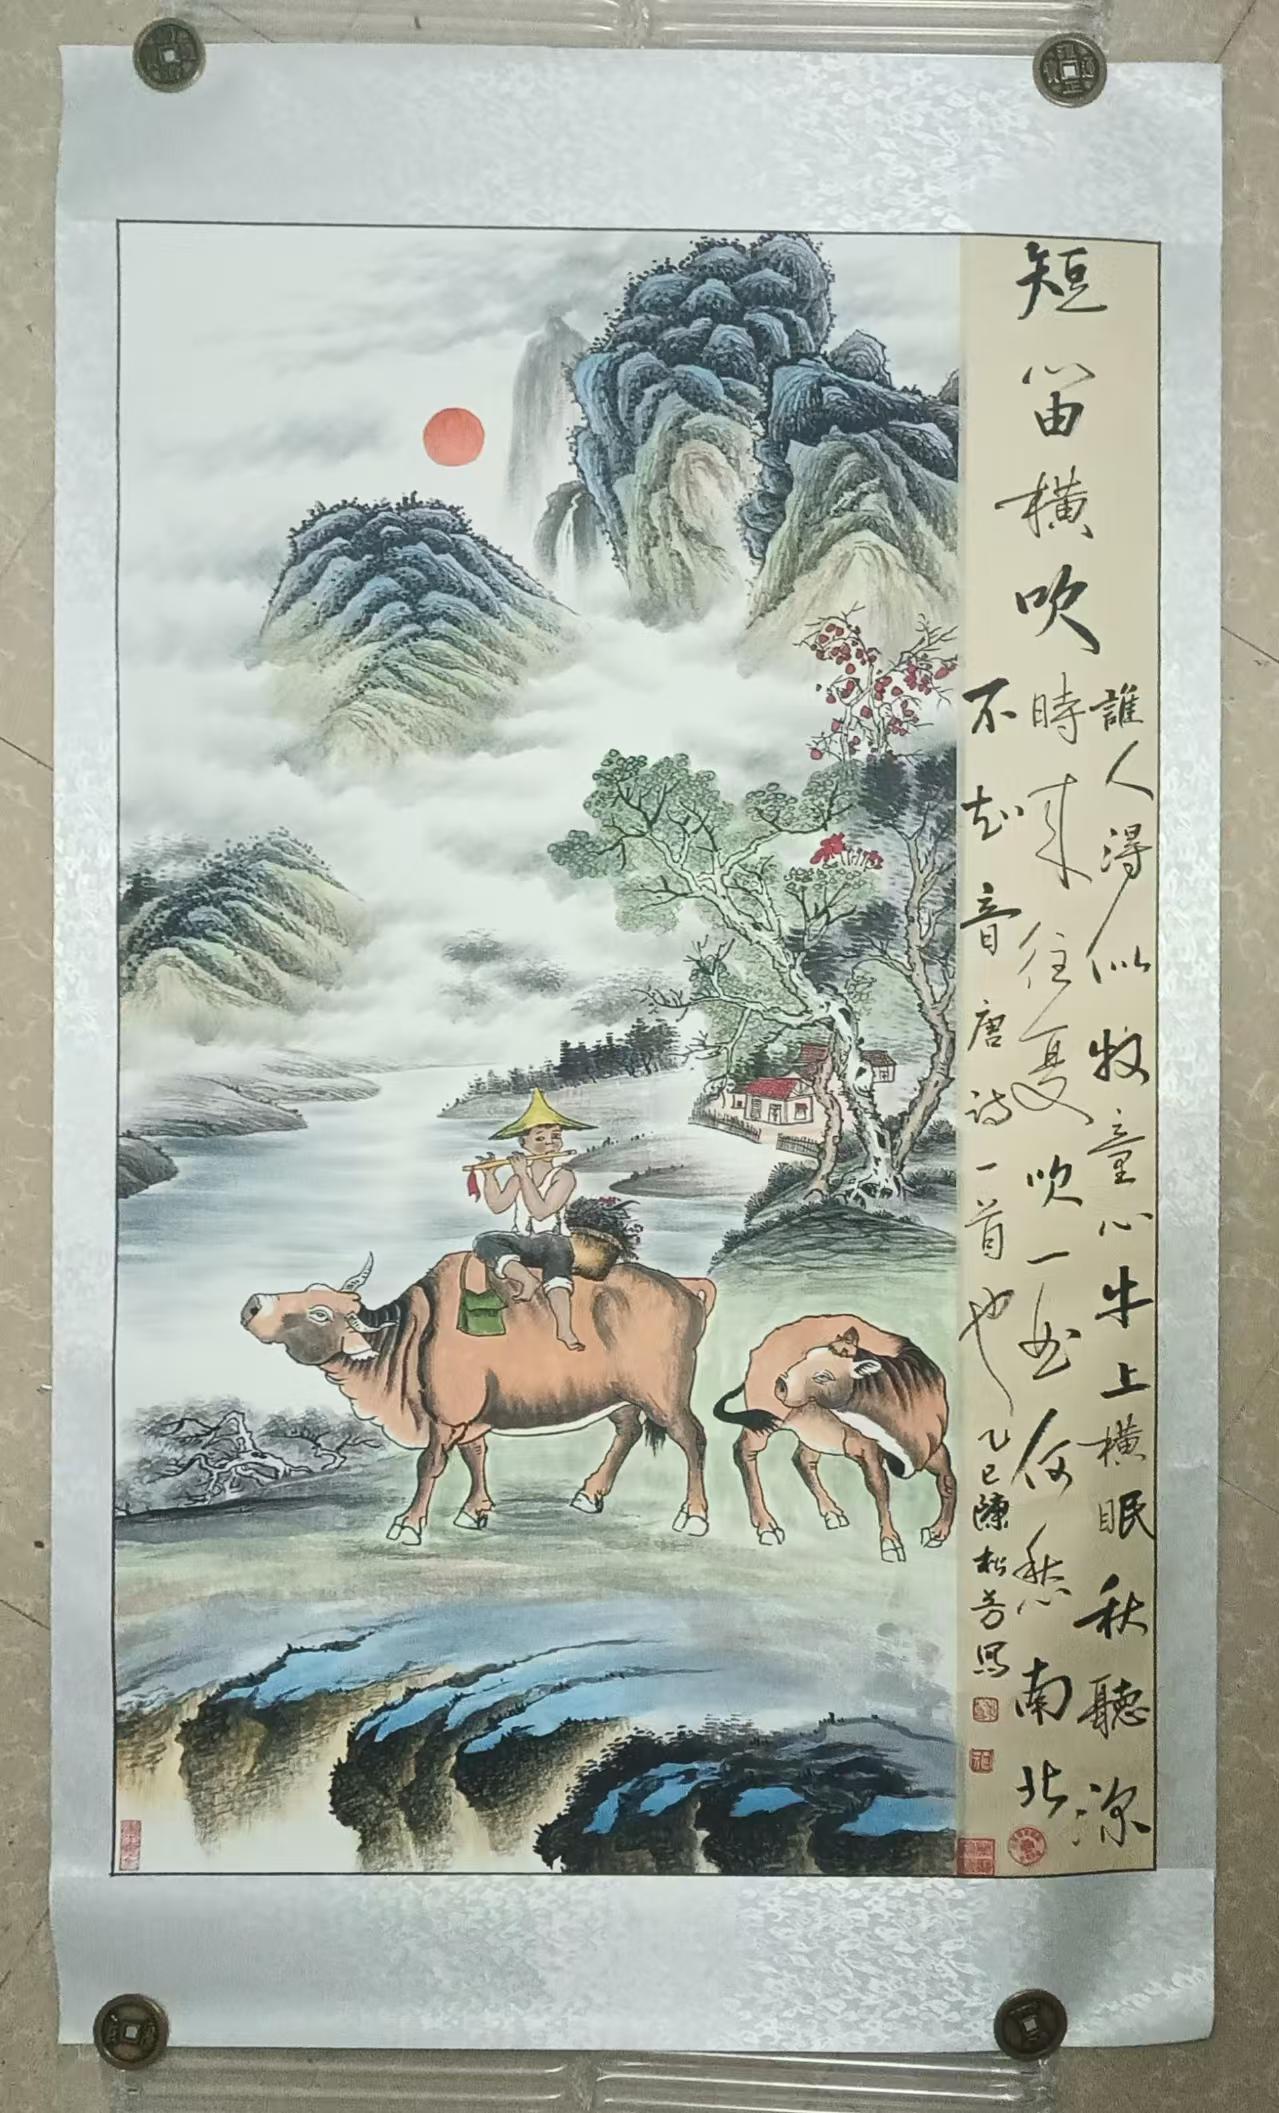 短笛橫吹
誰人得似牧童心牛上橫眠秋聽深
時来往复吹一曲何愁南北
不知音唐詩一首也
乙巳陳松芳寫